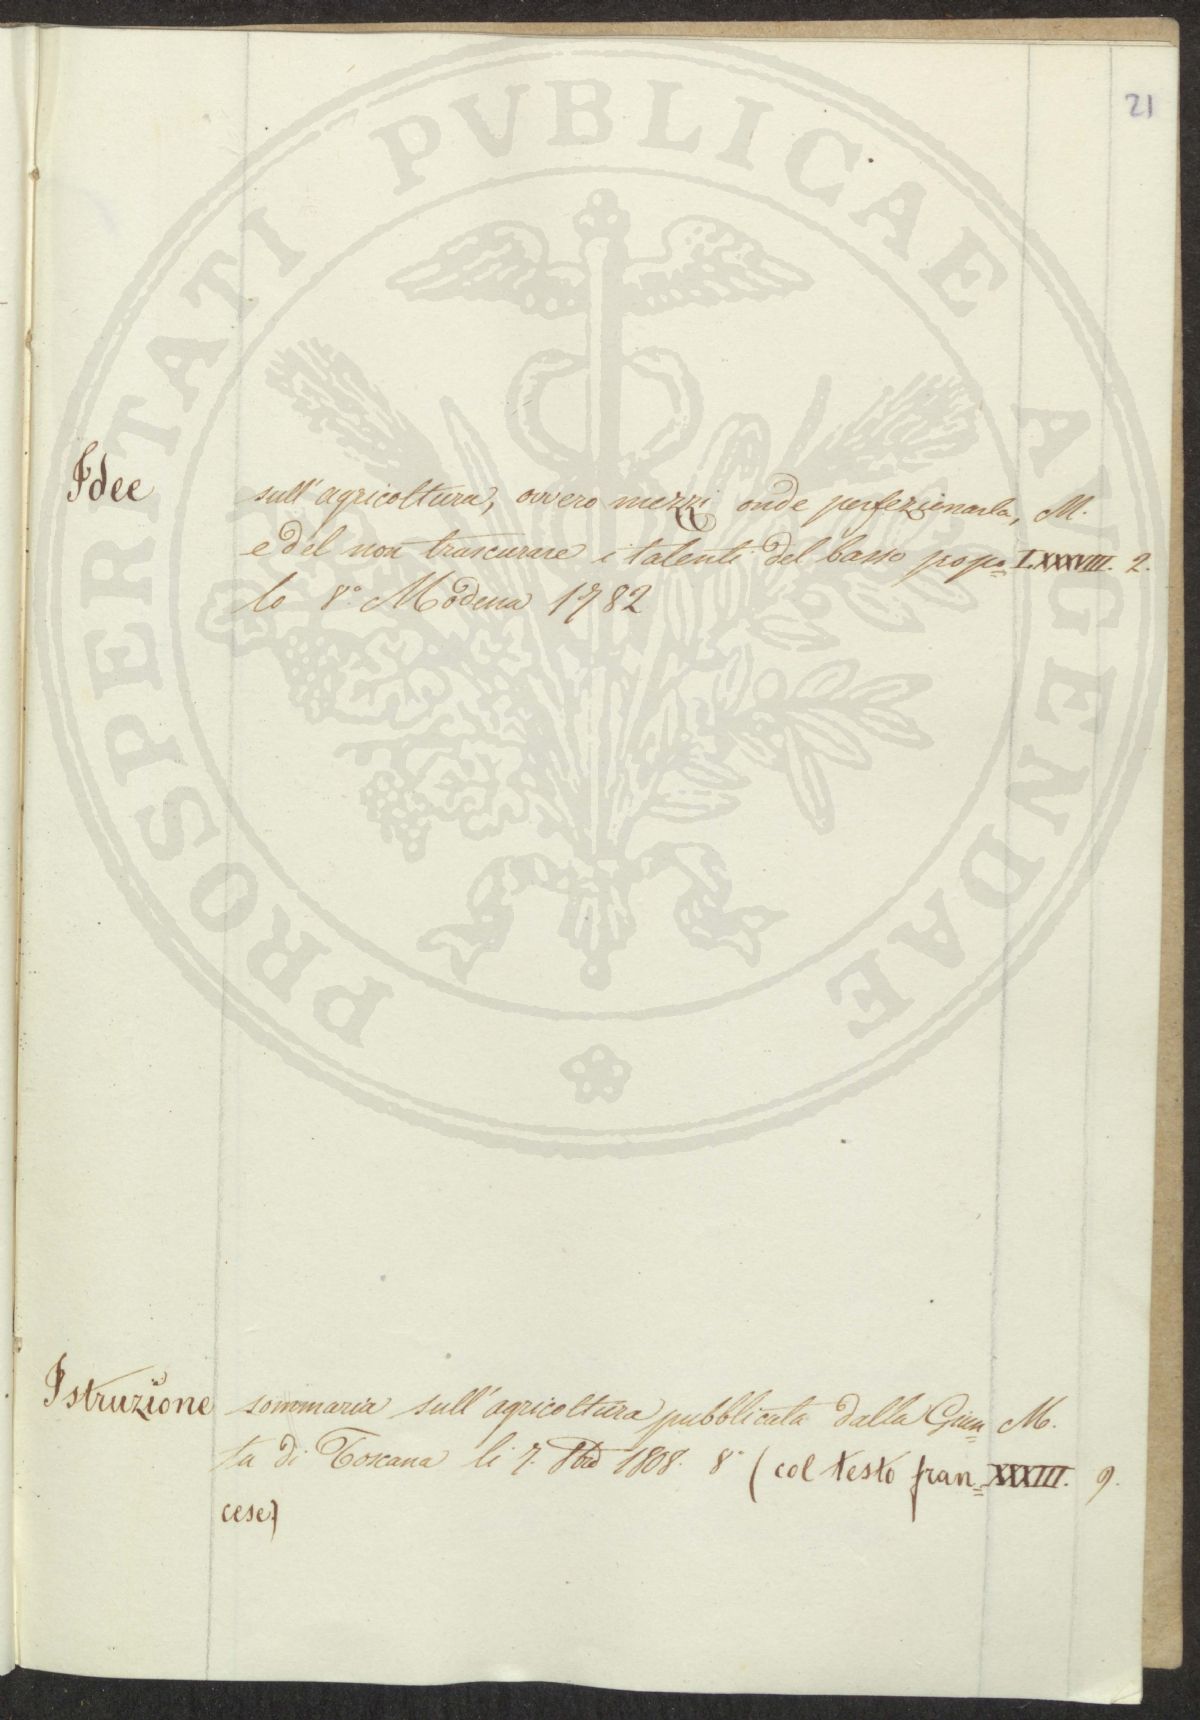 21
PROSPERITATI PVBLICAE AVGENDAE
Idee sull'agricoltura, ovvero mezzi onde perfezionarla, M.
e del non trascurare i talenti del basso popo= LXXXVIII. 2.
lo 8.° Modena 1782
Istruzione sommaria sull'agricoltura pubblicata dalla Giun= M.
ta di Toscana li 7. 8bre 1808. 8° (col testo fran= XXXIII. 9.
cese)